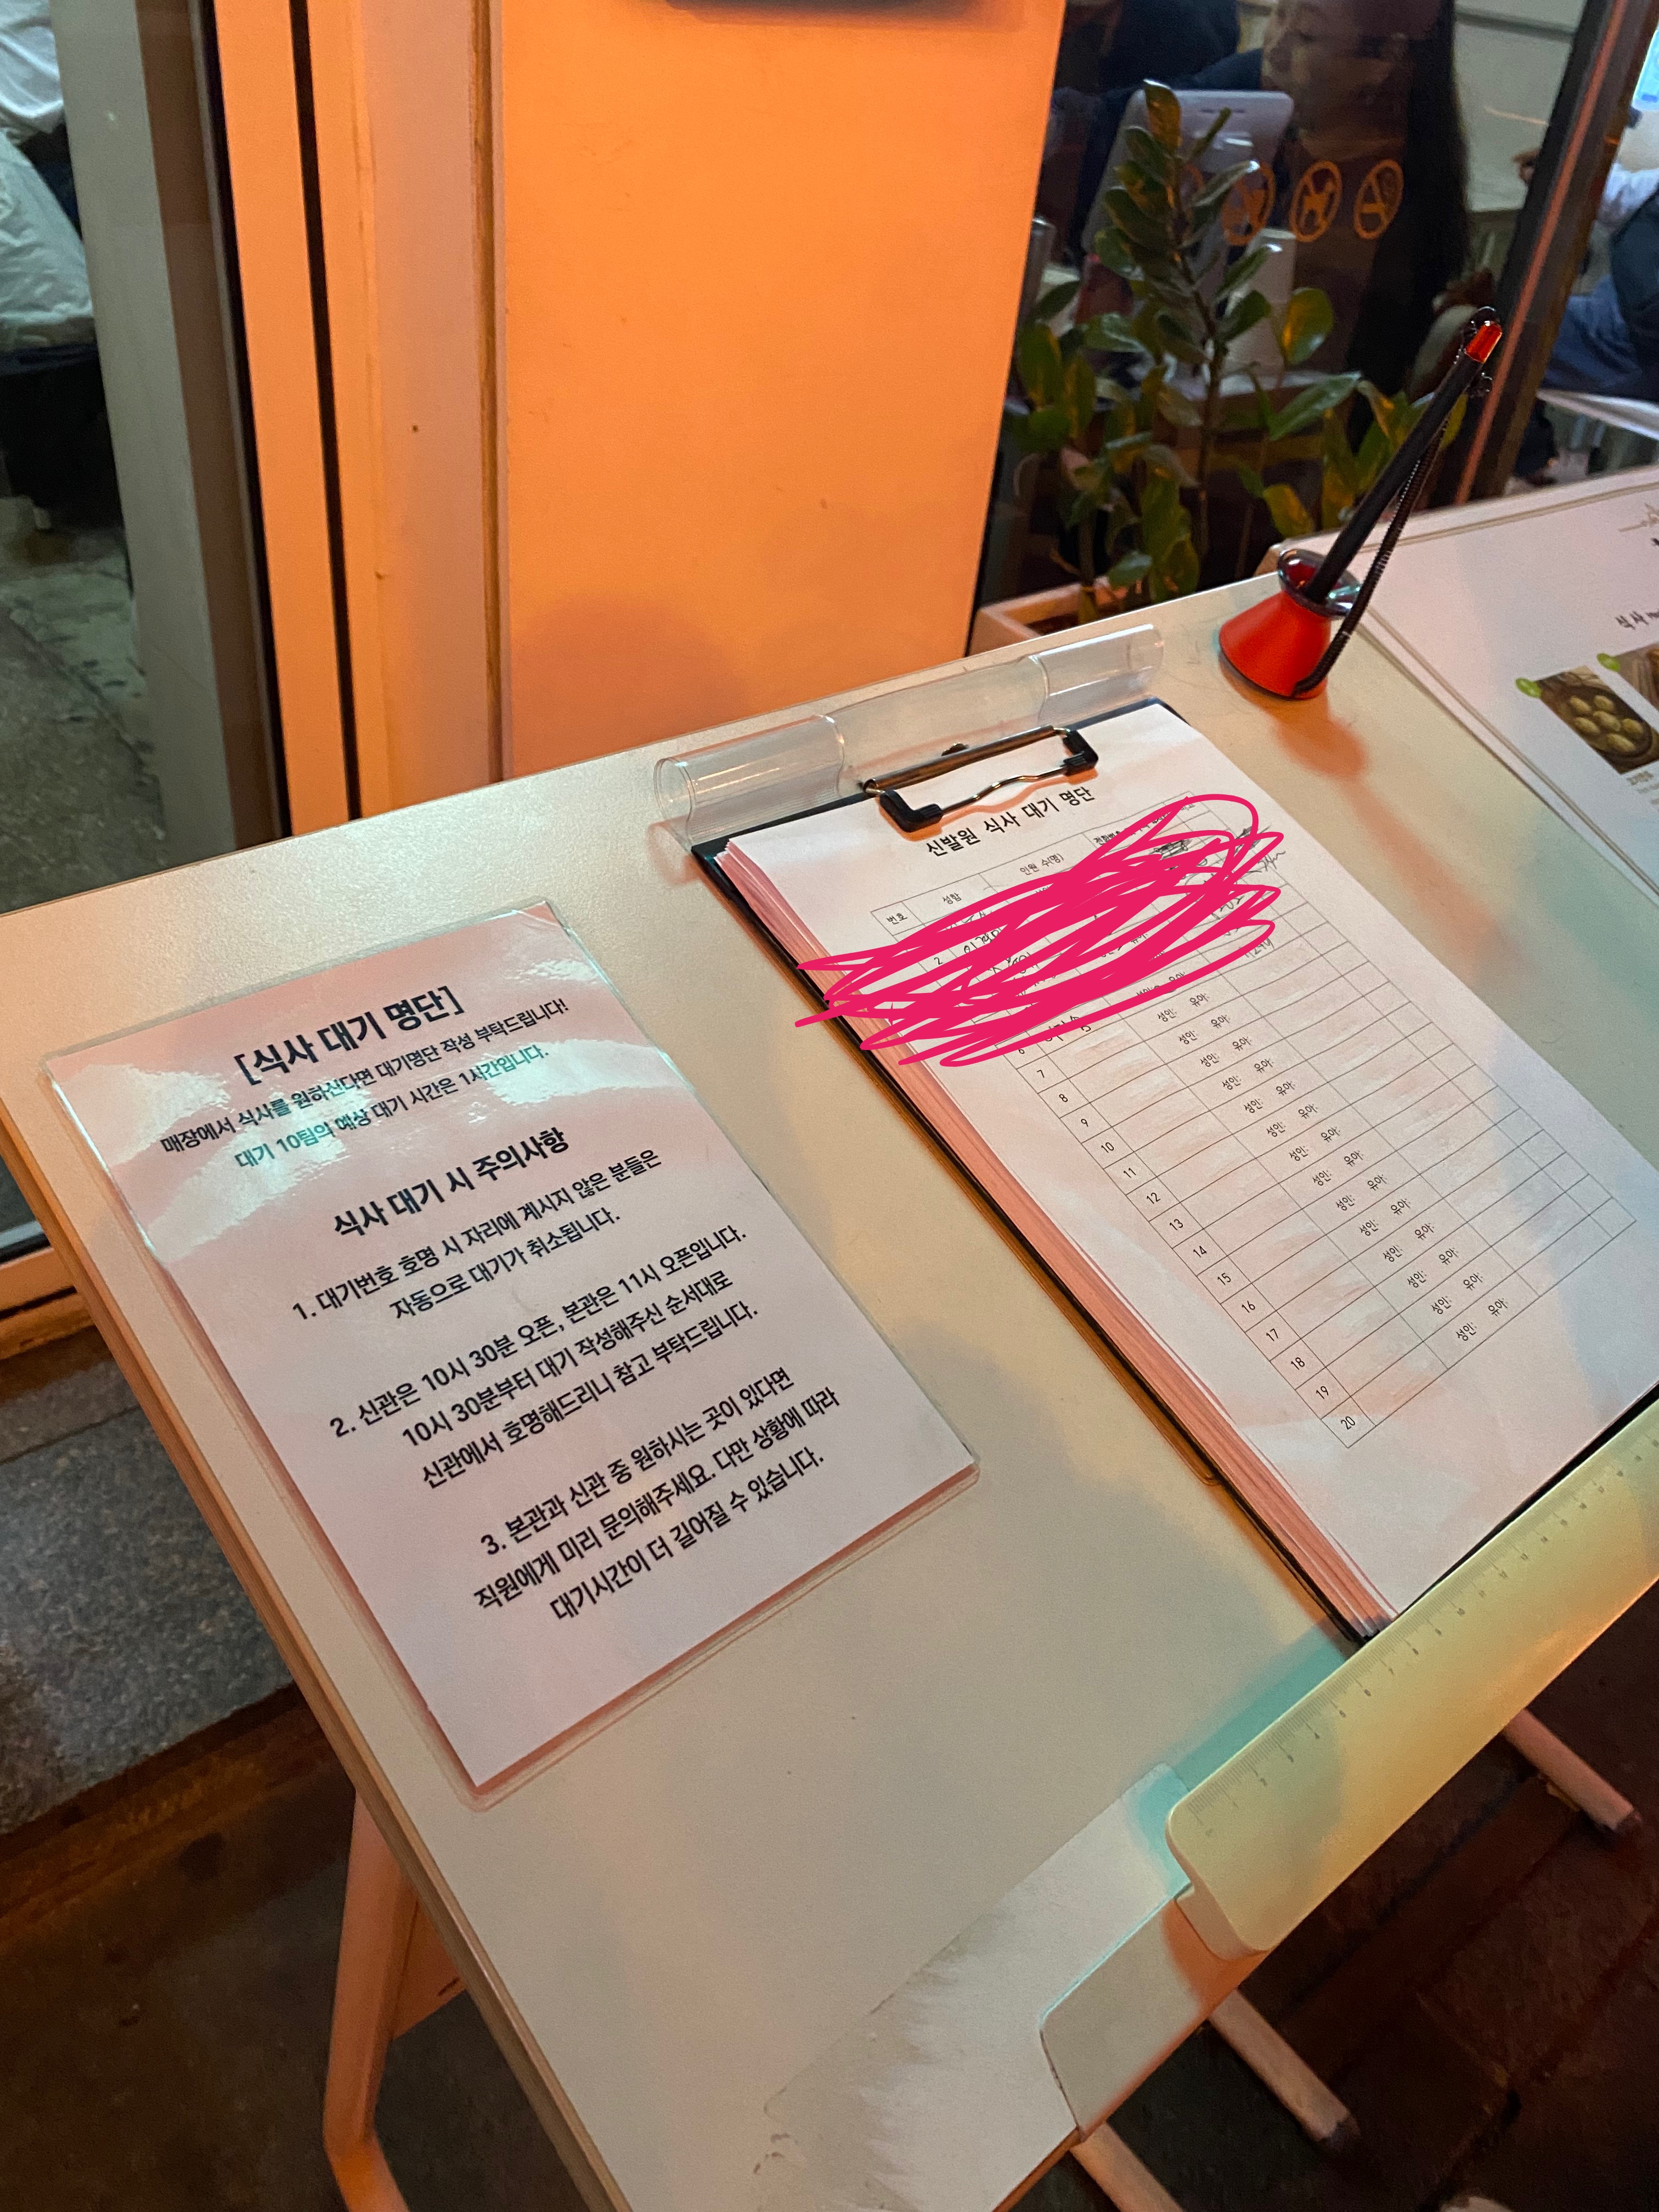 [식사 대기 명단]
매장에서 식사를 원하신다면 대기명단 작성 부탁드립니다!
대기 10팀의 예상 대기 시간은 1시간입니다.
식사 대기 시 주의사항
1. 대기번호 호명 시 자리에 계시지 않은 분들은
자동으로 대기가 취소됩니다.
2. 신관은 10시 30분 오픈, 본관은 11시 오픈입니다.
10시 30분부터 대기 작성해주신 순서대로
신관에서 호명해드리니 참고 부탁드립니다.
3. 본관과 신관 중 원하시는 곳이 있다면
직원에게 미리 문의해주세요. 다만 상황에 따라
대기시간이 더 길어질 수 있습니다.
신발원 식사 대기 명단
번호 성함 인원 수(명)
2
6
7 성인: 유아:
8 성인: 유아:
9 성인: 유아:
10 성인: 유아:
11 성인: 유아:
12 성인: 유아:
13 성인: 유아:
14 성인: 유아:
15 성인: 유아:
16 성인: 유아:
17 성인: 유아:
18 성인: 유아:
19 성인: 유아:
20 성인: 유아:
식사